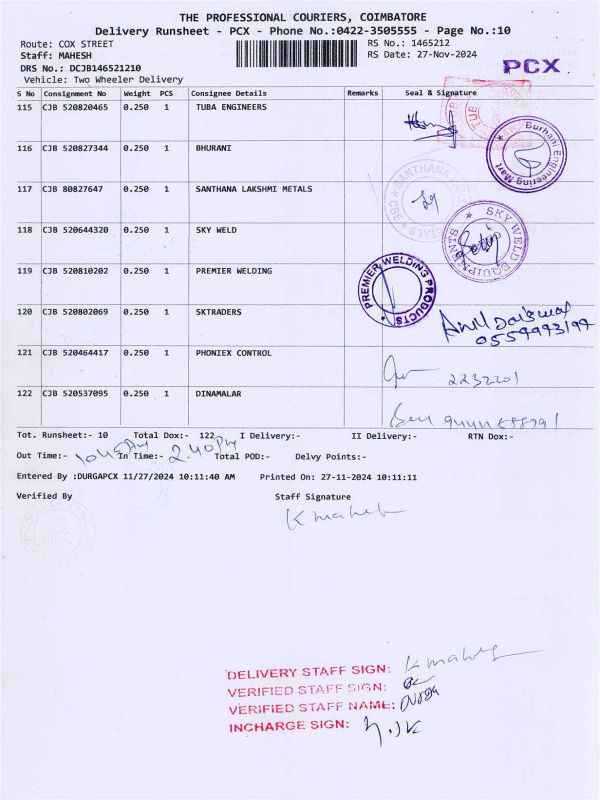 THE PROFESSIONAL COURIERS, COIMBATORE
Delivery Runsheet - PCX - Phone No.:0422-3505555 - Page No.:10
Route: COX STREET
RS No.: 1465212
Staff: MAHESH
RS Date: 27-Nov-2024
DRS No.: DCJB146521210
PCX
Vehicle: Two Wheeler Delivery
S No Consignment No Weight PCS Consignee Details Remarks Seal & Signature
115 CJB 520820465 0.250 1 TUBA ENGINEERS
116 CJB 520827344 0.250 1 BHURANI
Burhani Engineering Mart
117 CJB 80827647 0.250 1 SANTHANA LAKSHMI METALS
SANTHANA
118 CJB 520644320 0.250 1 SKY WELD
SKY WELD EQUIPMENTS
119 CJB 520810202 0.250 1 PREMIER WELDING
PREMIER WELDING PRODUCTS
120 CJB 520802069 0.250 1 SKTRADERS
121 CJB 520464417 0.250 1 PHONIEX CONTROL
2232201
122 CJB 520537095 0.250 1 DINAMALAR
Tot. Runsheet:- 10 Total Dox:- 122 I Delivery:- II Delivery:- RTN Dox:-
Out Time:- In Time:- 2.40 PM Total POD:- Delvy Points:-
Entered By :DURGAPCX 11/27/2024 10:11:40 AM Printed On: 27-11-2024 10:11:11
Verified By Staff Signature
K mahesh
DELIVERY STAFF SIGN: K mahesh
VERIFIED STAFF SIGN:
VERIFIED STAFF NAME:
INCHARGE SIGN: